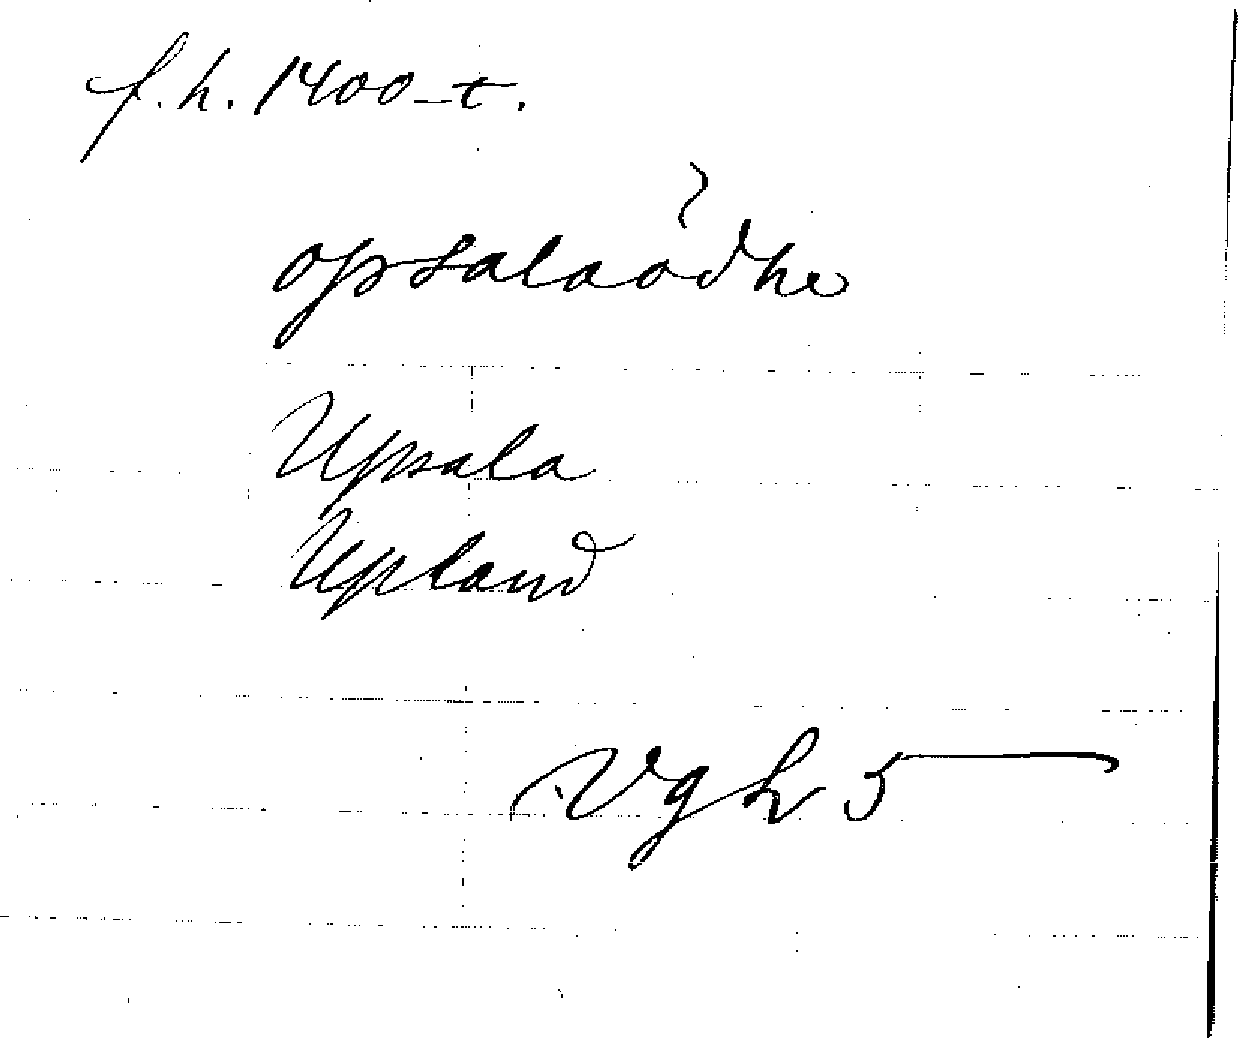 f. h. 1400-t.
opsalaödhe
Upsala
Upland
VgL 5